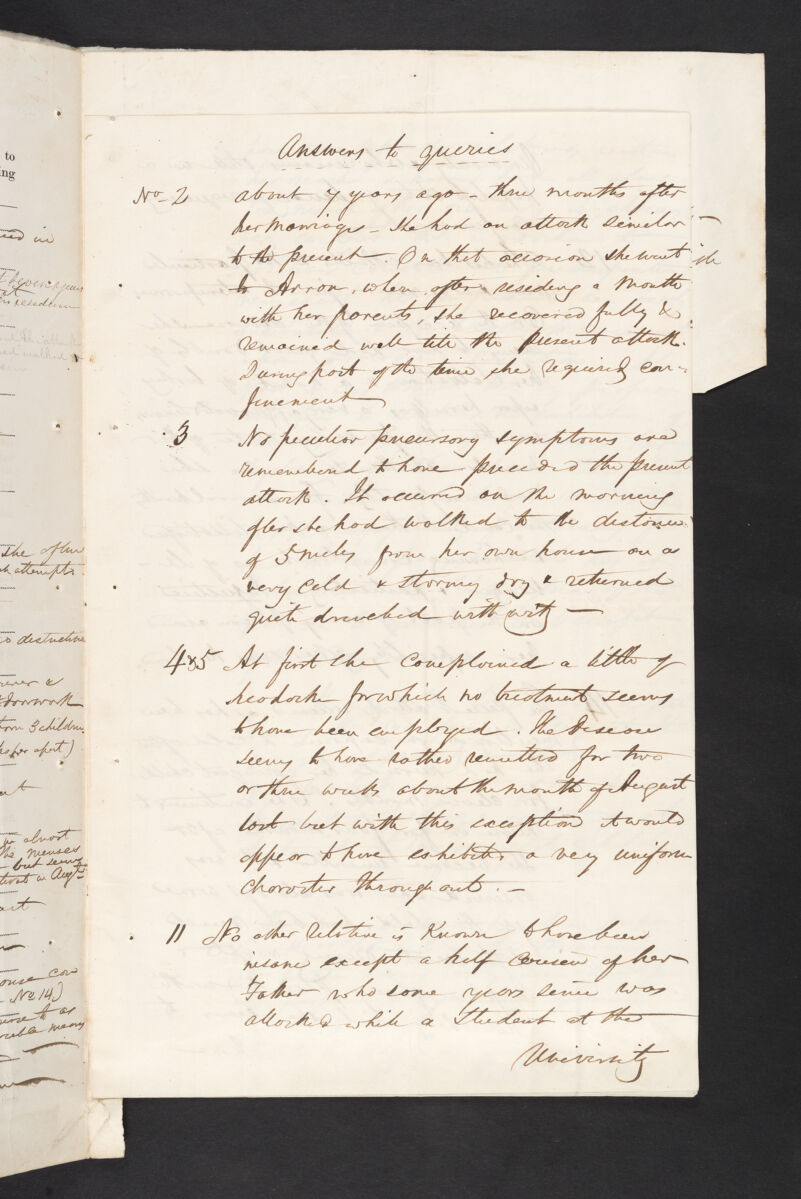 to
ing
Answers to queries
No 2 about 7 years ago - three months after
her marriage - she had an attack similar
to the present. On that occasion she went
to Arran, when after residing a month
with her parents, she recovered fully &
remained well till the present attack.
During part of the time she required con-
finement
3 No peculiar precursory symptoms are
remembered to have preceded the present
attack. It occured on the morning
after she had walked to the distance
of 5 miles from her own house on a
very cold & stormy day & returned
quite drenched with
4&5 At first she complained a little of
headache for which no treatment seems
to have been employed. The Disease
seems to have rather remitted for two
or three weeks about the month of August
last but with this exception it would
appear to have exhibited a very uniform
character throughout. -
11 No other relative is Known to have been
insane except a half cousin of her
Father who some years since was
attacked while a Student at the
University
she often
attempts.
destructive
3 children
apart)
almost
menses
but seems
in Augt
No 14)